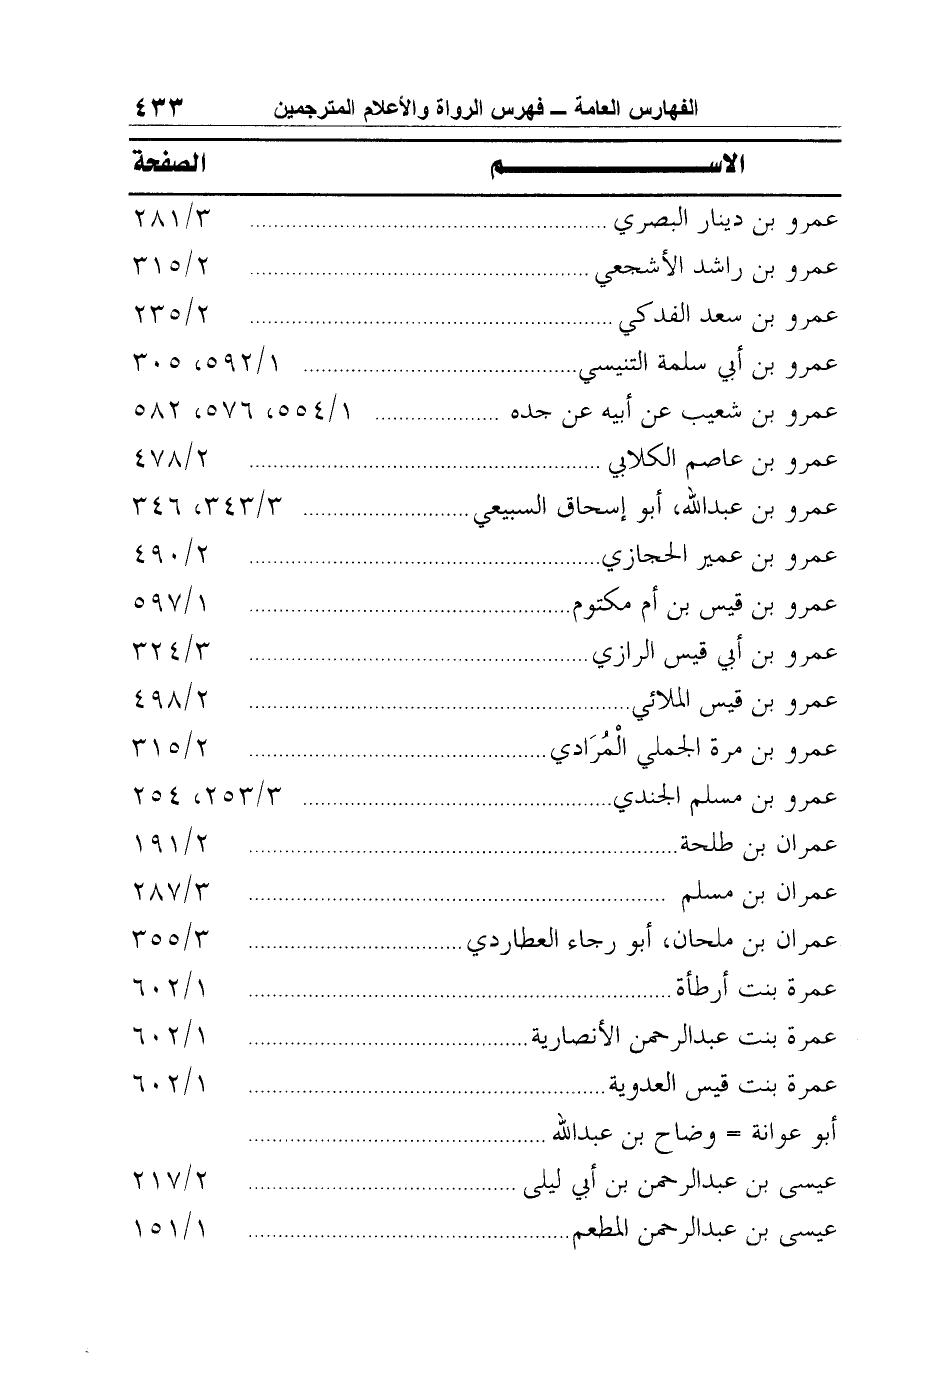 الفهارس العامة ــ فهرس الرواة والأعلام المترجمين ٤٣٣
الاســـــــــــم الصفحة
عمرو بن دينار البصري ٢٨١/٣
عمرو بن راشد الأشجعي ٣١٥/٢
عمرو بن سعد الفدكي ٢٣٥/٢
عمرو بن أبي سلمة التنيسي ٥٩٢/١، ٣٠٥
عمرو بن شعيب عن أبيه عن جده ٥٥٤/١، ٥٧٦، ٥٨٢
عمرو بن عاصم الكلابي ٤٧٨/٢
عمرو بن عبدالله، أبو إسحاق السبيعي ٣٤٣/٣، ٣٤٦
عمرو بن عمير الحجازي ٤٩٠/٢
عمرو بن قيس بن أم مكتوم ٥٩٧/١
عمرو بن أبي قيس الرازي ٣٢٤/٣
عمرو بن قيس الملائي ٤٩٨/٢
عمرو بن مرة الجملي الْمُرَادي ٣١٥/٢
عمرو بن مسلم الجندي ٢٥٣/٣، ٢٥٤
عمران بن طلحة ١٩١/٢
عمران بن مسلم ٢٨٧/٣
عمران بن ملحان، أبو رجاء العطاردي ٣٥٥/٣
عمرة بنت أرطأة ٦٠٢/١
عمرة بنت عبدالرحمن الأنصارية ٦٠٢/١
عمرة بنت قيس العدوية ٦٠٢/١
أبو عوانة = وضاح بن عبدالله
عيسى بن عبدالرحمن بن أبي ليلى ٢١٧/٢
عيسى بن عبدالرحمن المطعم ١٥١/١